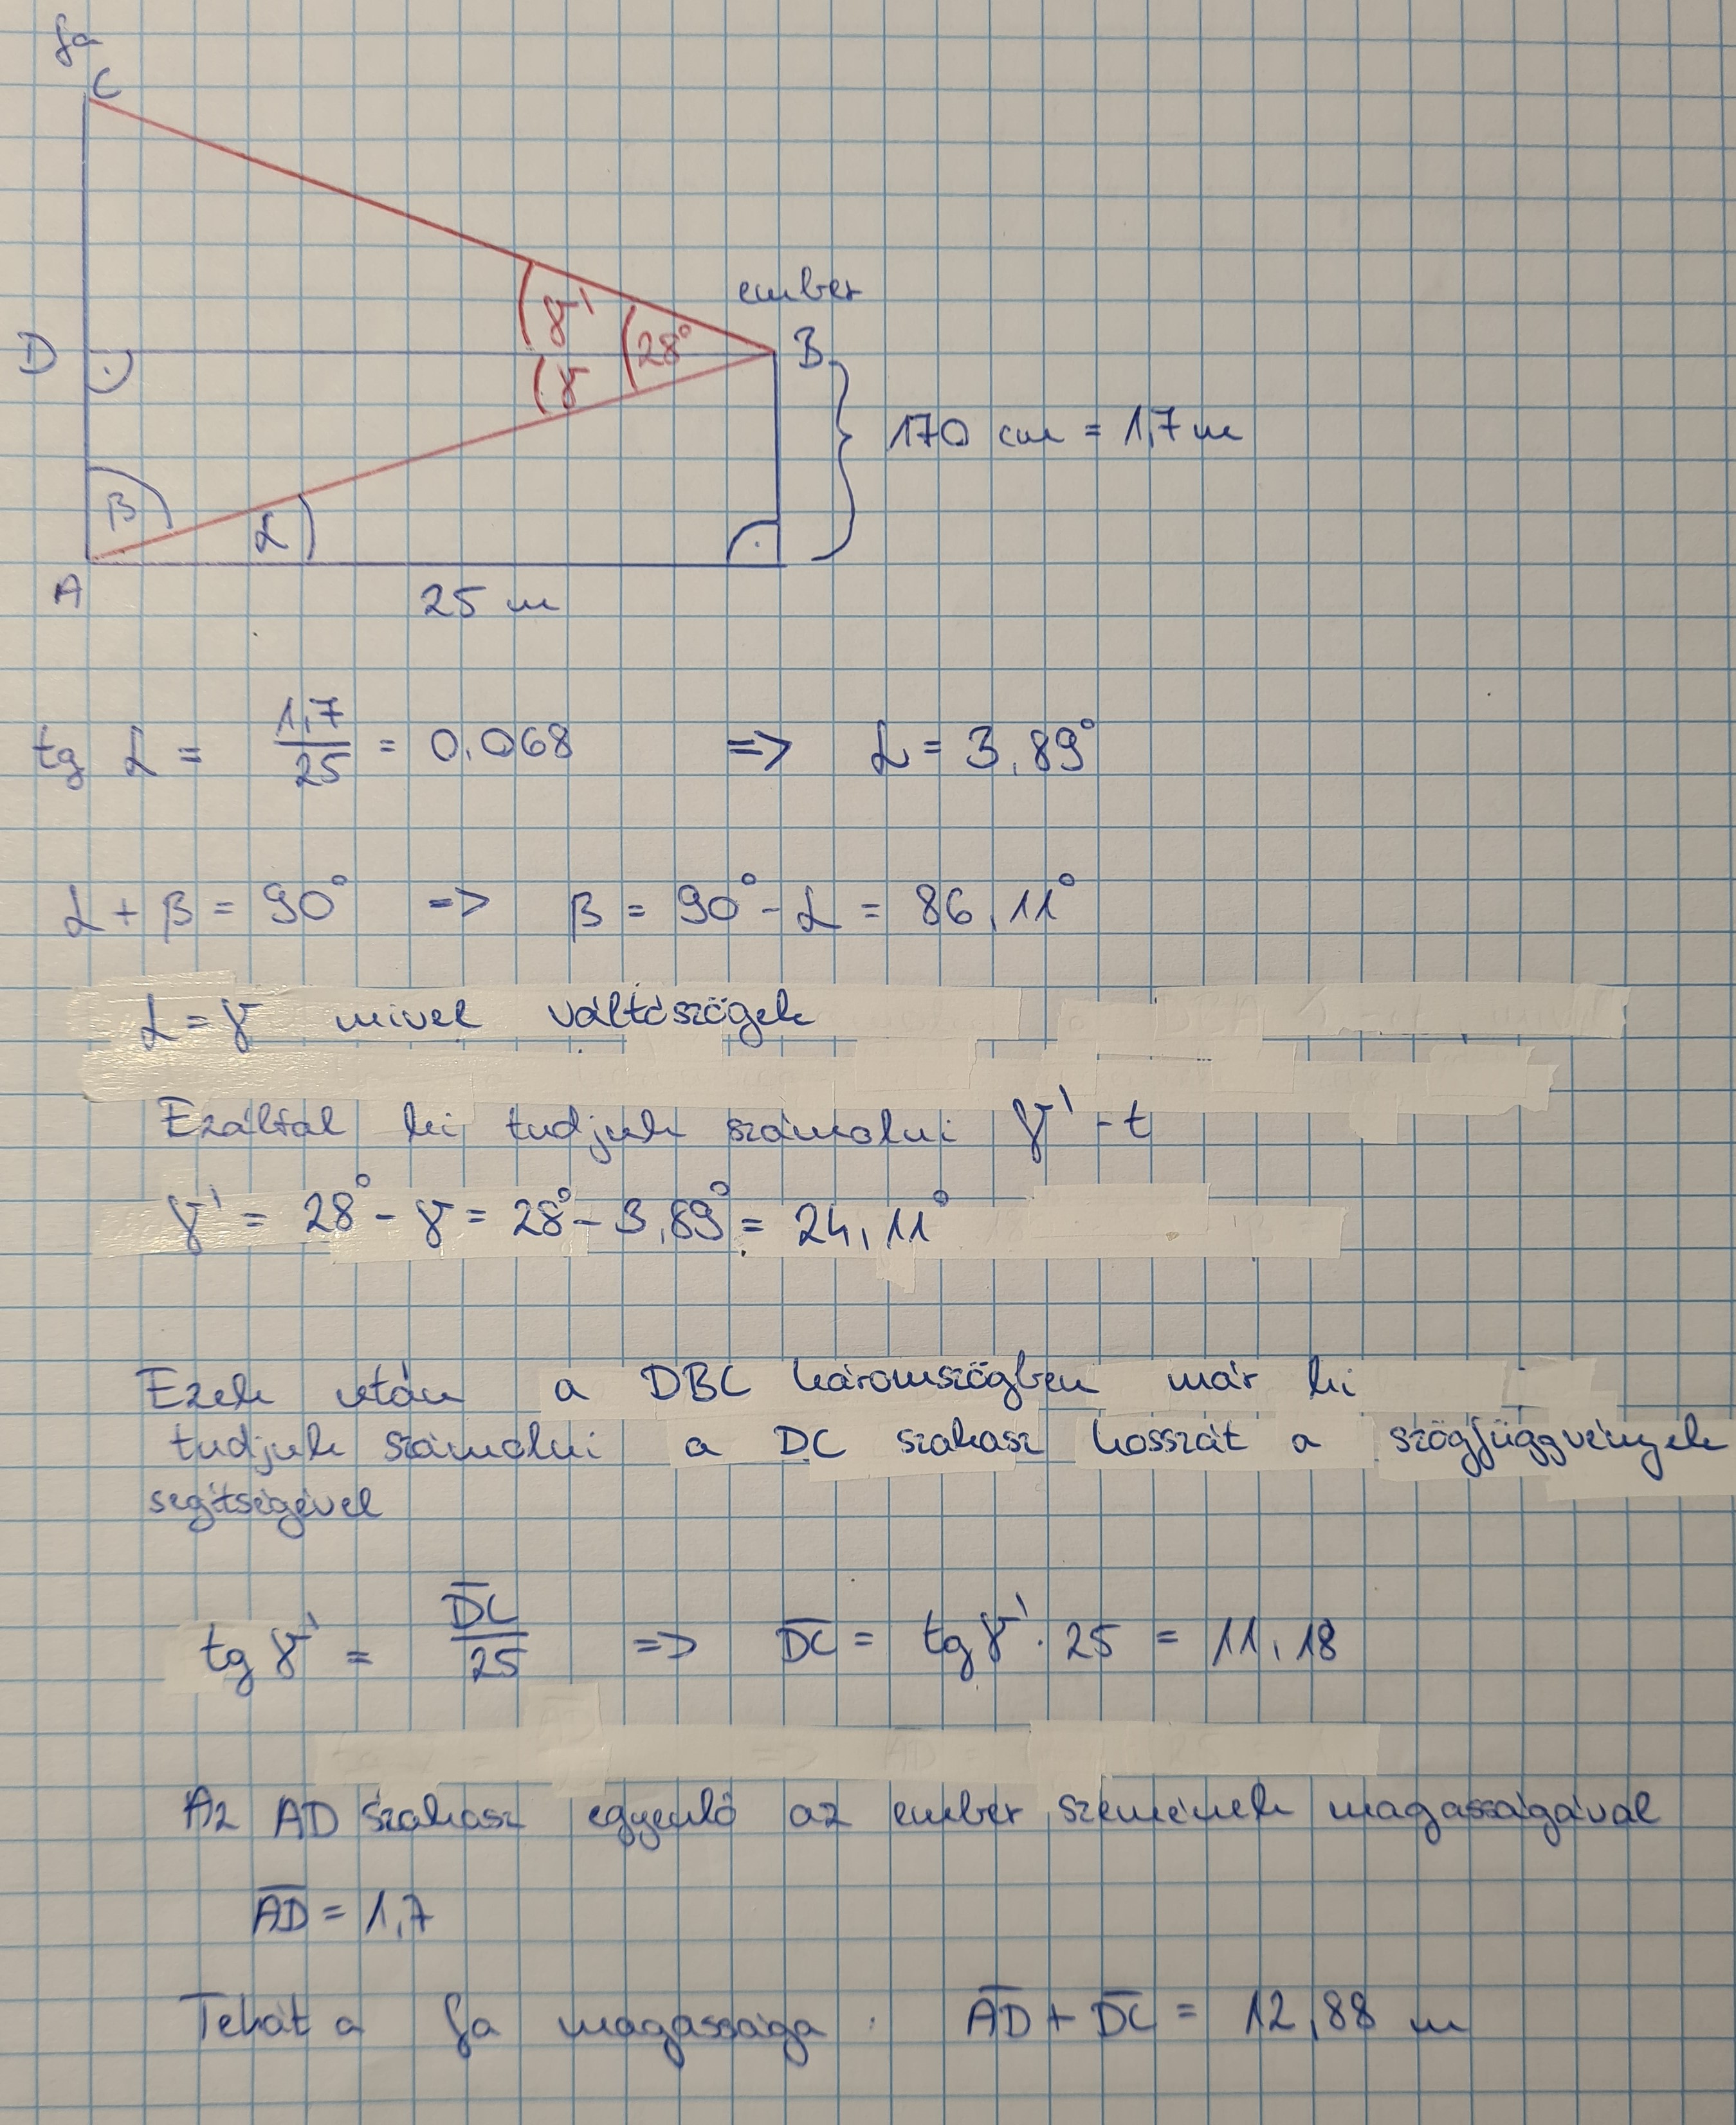 fa
C
ember
γ'
28°
D
B
γ
170 cm = 1,7 m
β
α
A
25 m
tg α = 1,7/25 = 0,068 => α = 3,89°
α + β = 90° => β = 90° - α = 86,11°
α = γ mivel váltószögek
Ezáltal ki tudjuk számolni γ'-t
γ' = 28° - γ = 28° - 3,89° = 24,11°
Ezek után a DBC háromszögben már ki
tudjuk számolni a DC szakasz hosszát a szögfüggvények
segítségével
tg γ' = DC/25 => DC = tg γ' · 25 = 11,18
Az AD szakasz egyenlő az ember szemének magasságával
AD = 1,7
Tehát a fa magassága: AD + DC = 12,88 m